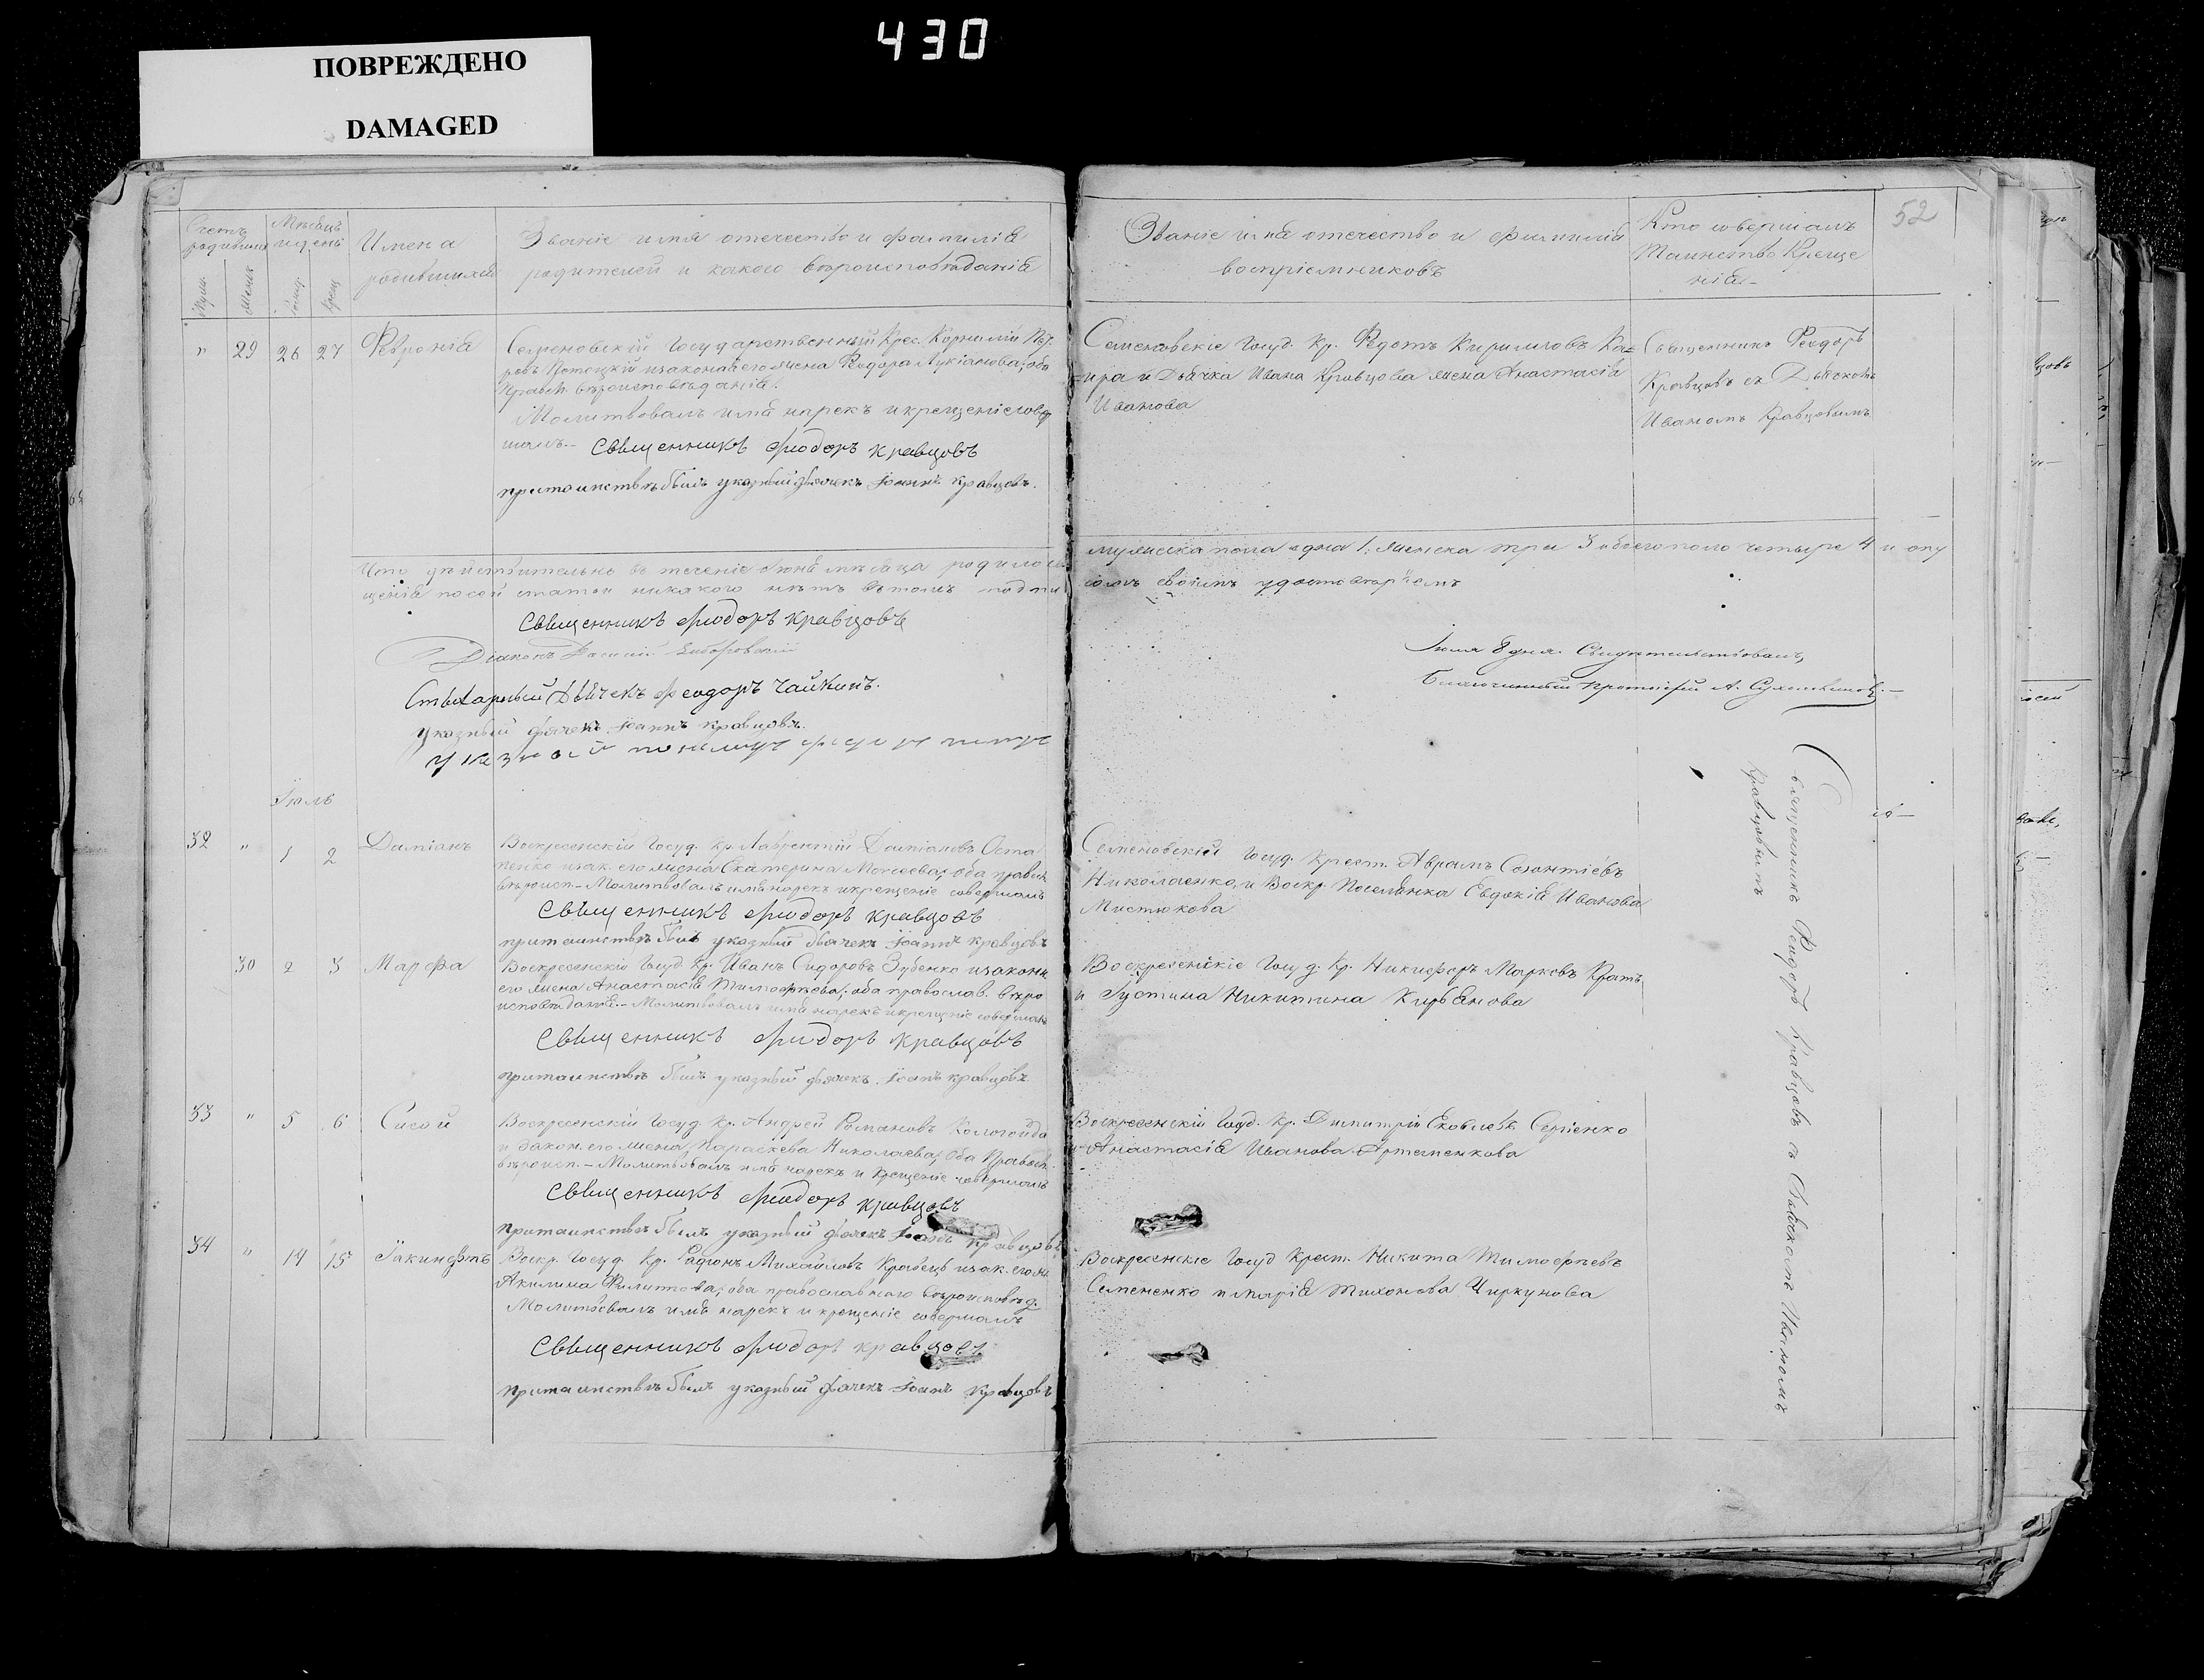 430
ПОВРЕЖДЕНО
DAMAGED
52
Счетъ родившихся
Мѣсяцъ и день
Имена родившихся
Званіе имя отечество и фамилія
родителей и какого вѣроисповѣданія
Званіе имя отечество и фамилія
воспріемниковъ
Кто совершалъ
Таинство Креще
нія
29 26 27 Февронія
Семеновскій Государственный Крес. Корнилій
его жена Феодора Лукіанова, оба
Правосл. вѣроисповѣданія.
Молитвовалъ имя нарекъ и крещеніе совер
шалъ. Священникъ Феодоръ Кравцовъ
при таинствѣ былъ указный дьячекъ Іоаннъ Кравцовъ.
Семеновскіе Госуд. Кр. Федотъ Кирилловъ
и Дьячка Ивана Кравцова жена Анастасія
Иванова
Священникъ Феодоръ
Кравцовъ съ Дьячкомъ
Иваномъ Кравцовымъ
Что дѣйствительно въ теченіе Іюня мѣсяца родилось
мужеска пола одна 1, женска три 3 обоего пола четыре 4 и опу
щенія по сей статьи никакого нѣтъ въ томъ подпи
сомъ своимъ удостовѣряемъ
Священникъ Феодоръ Кравцовъ
Діаконъ Василій
Стихарный Дьячекъ Феодоръ Чайкинъ.
указный дьячекъ Іоаннъ Кравцовъ.
указный пономарь
Іюля 8 дня. Свидѣтельствовалъ,
Благочинный Протоіерей А.
Іюль
32 " 1 2 Даміанъ
Воскресенскій Госуд. Кр. Лаврентій Даміановъ Оста
пенко и зак. его жена Екатерина Моисеева, оба правосл.
вѣроисп. - Молитвовалъ имя нарекъ и крещеніе совершалъ
Священникъ Феодоръ Кравцовъ
при таинствѣ былъ указный дьячекъ Іоаннъ Кравцовъ
Семеновскій Госуд. Крест. Аврамъ Созонтіевъ
Николаенко, и Воскр. Поселянка Евдокія Иванова
Мистюкова
30 2 3 Марфа
Воскресенскій Госуд. Кр. Иванъ Сидоровъ Зубенко и законн.
его жена Анастасія Тимофѣева, оба православ. вѣро
исповѣданія. - Молитвовалъ имя нарекъ и крещеніе совершалъ
Священникъ Феодоръ Кравцовъ
при таинствѣ былъ указный дьячекъ Іоаннъ Кравцовъ
Воскресенскіе Госуд. Кр. Никифоръ Марковъ Кратъ
и Іустина Никитина Кирьянова
33 " 5 6 Сисой
Воскресенскій Госуд. Кр. Андрей Романовъ Кологойда
и закон. его жена Параскева Николаева, оба Правосл.
вѣроисп. - Молитвовалъ имя нарекъ и Крещеніе совершалъ
Священникъ Феодоръ Кравцовъ
при таинствѣ былъ указный дьячекъ Іоаннъ Кравцовъ
Воскресенскій Госуд. Кр. Димитрій Яковлевъ Сергіенко
и Анастасія Иванова Артеменкова
34 " 14 15 Іакинфъ
Воскр. Госуд. Кр. Радіонъ Михайловъ Кравецъ и зак. его ж.
Акилина Филиппова, оба православнаго вѣроисповѣд.
Молитвовалъ имя нарекъ и крещеніе совершалъ
Священникъ Феодоръ Кравцовъ
при таинствѣ былъ указный дьячекъ Іоаннъ Кравцовъ
Воскресенскіе Госуд Крест. Никита Тимофѣевъ
Семененко и Марія Тихонова Чиркунова
Священникъ Феодоръ Кравцовъ съ Дьячкомъ Иваномъ
Кравцовымъ